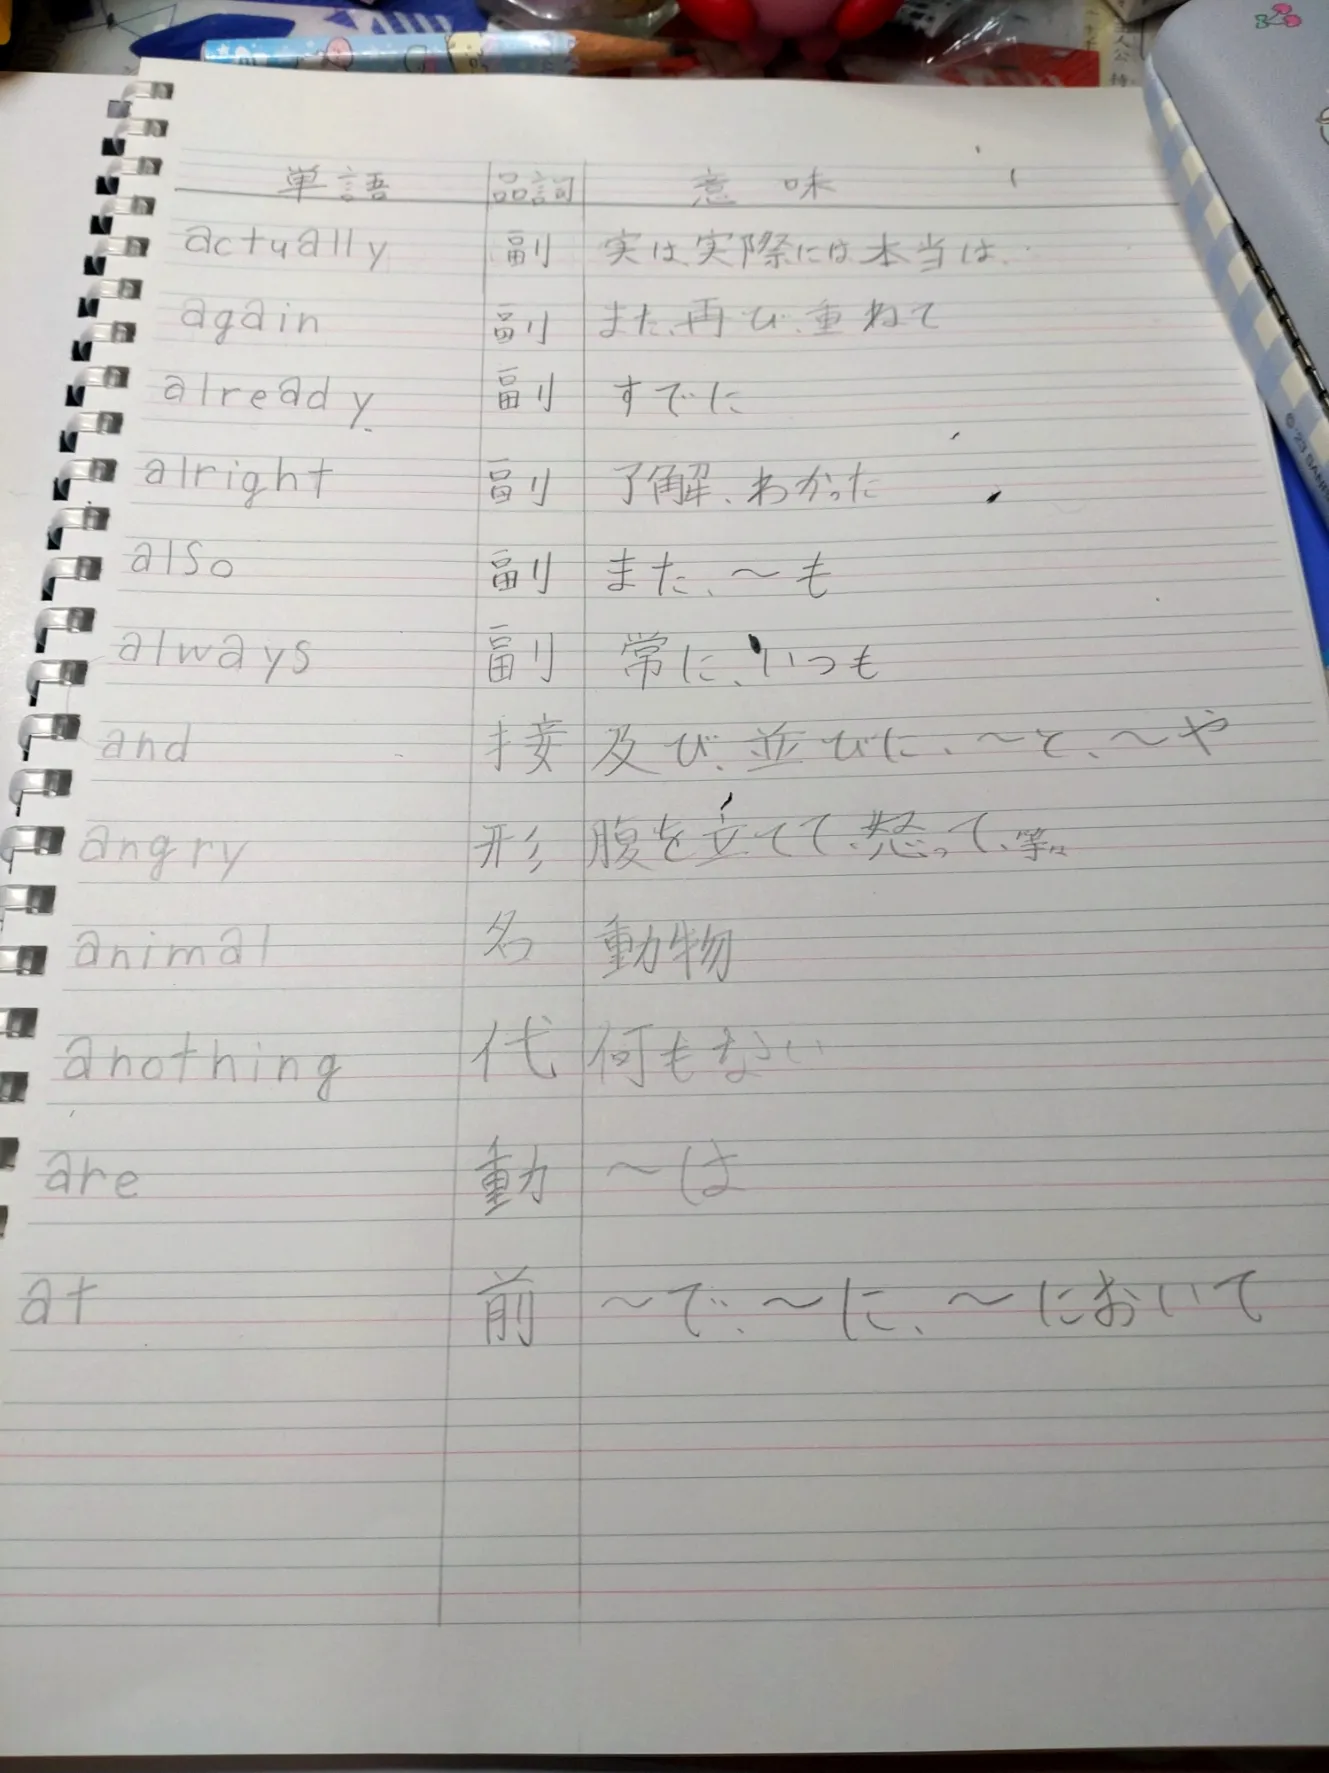 単語 品詞 意味
actually 副 実は、実際には、本当は、
again 副 また、再び、重ねて
already 副 すでに
alright 副 了解、わかった
also 副 また、〜も
always 副 常に、いつも
and 接 及び、並びに、〜と、〜や
angry 形 腹を立てて、怒って、
animal 名 動物
anothing 代 何もない
are 動 〜は
at 前 〜で、〜に、〜において
©'23 SANR